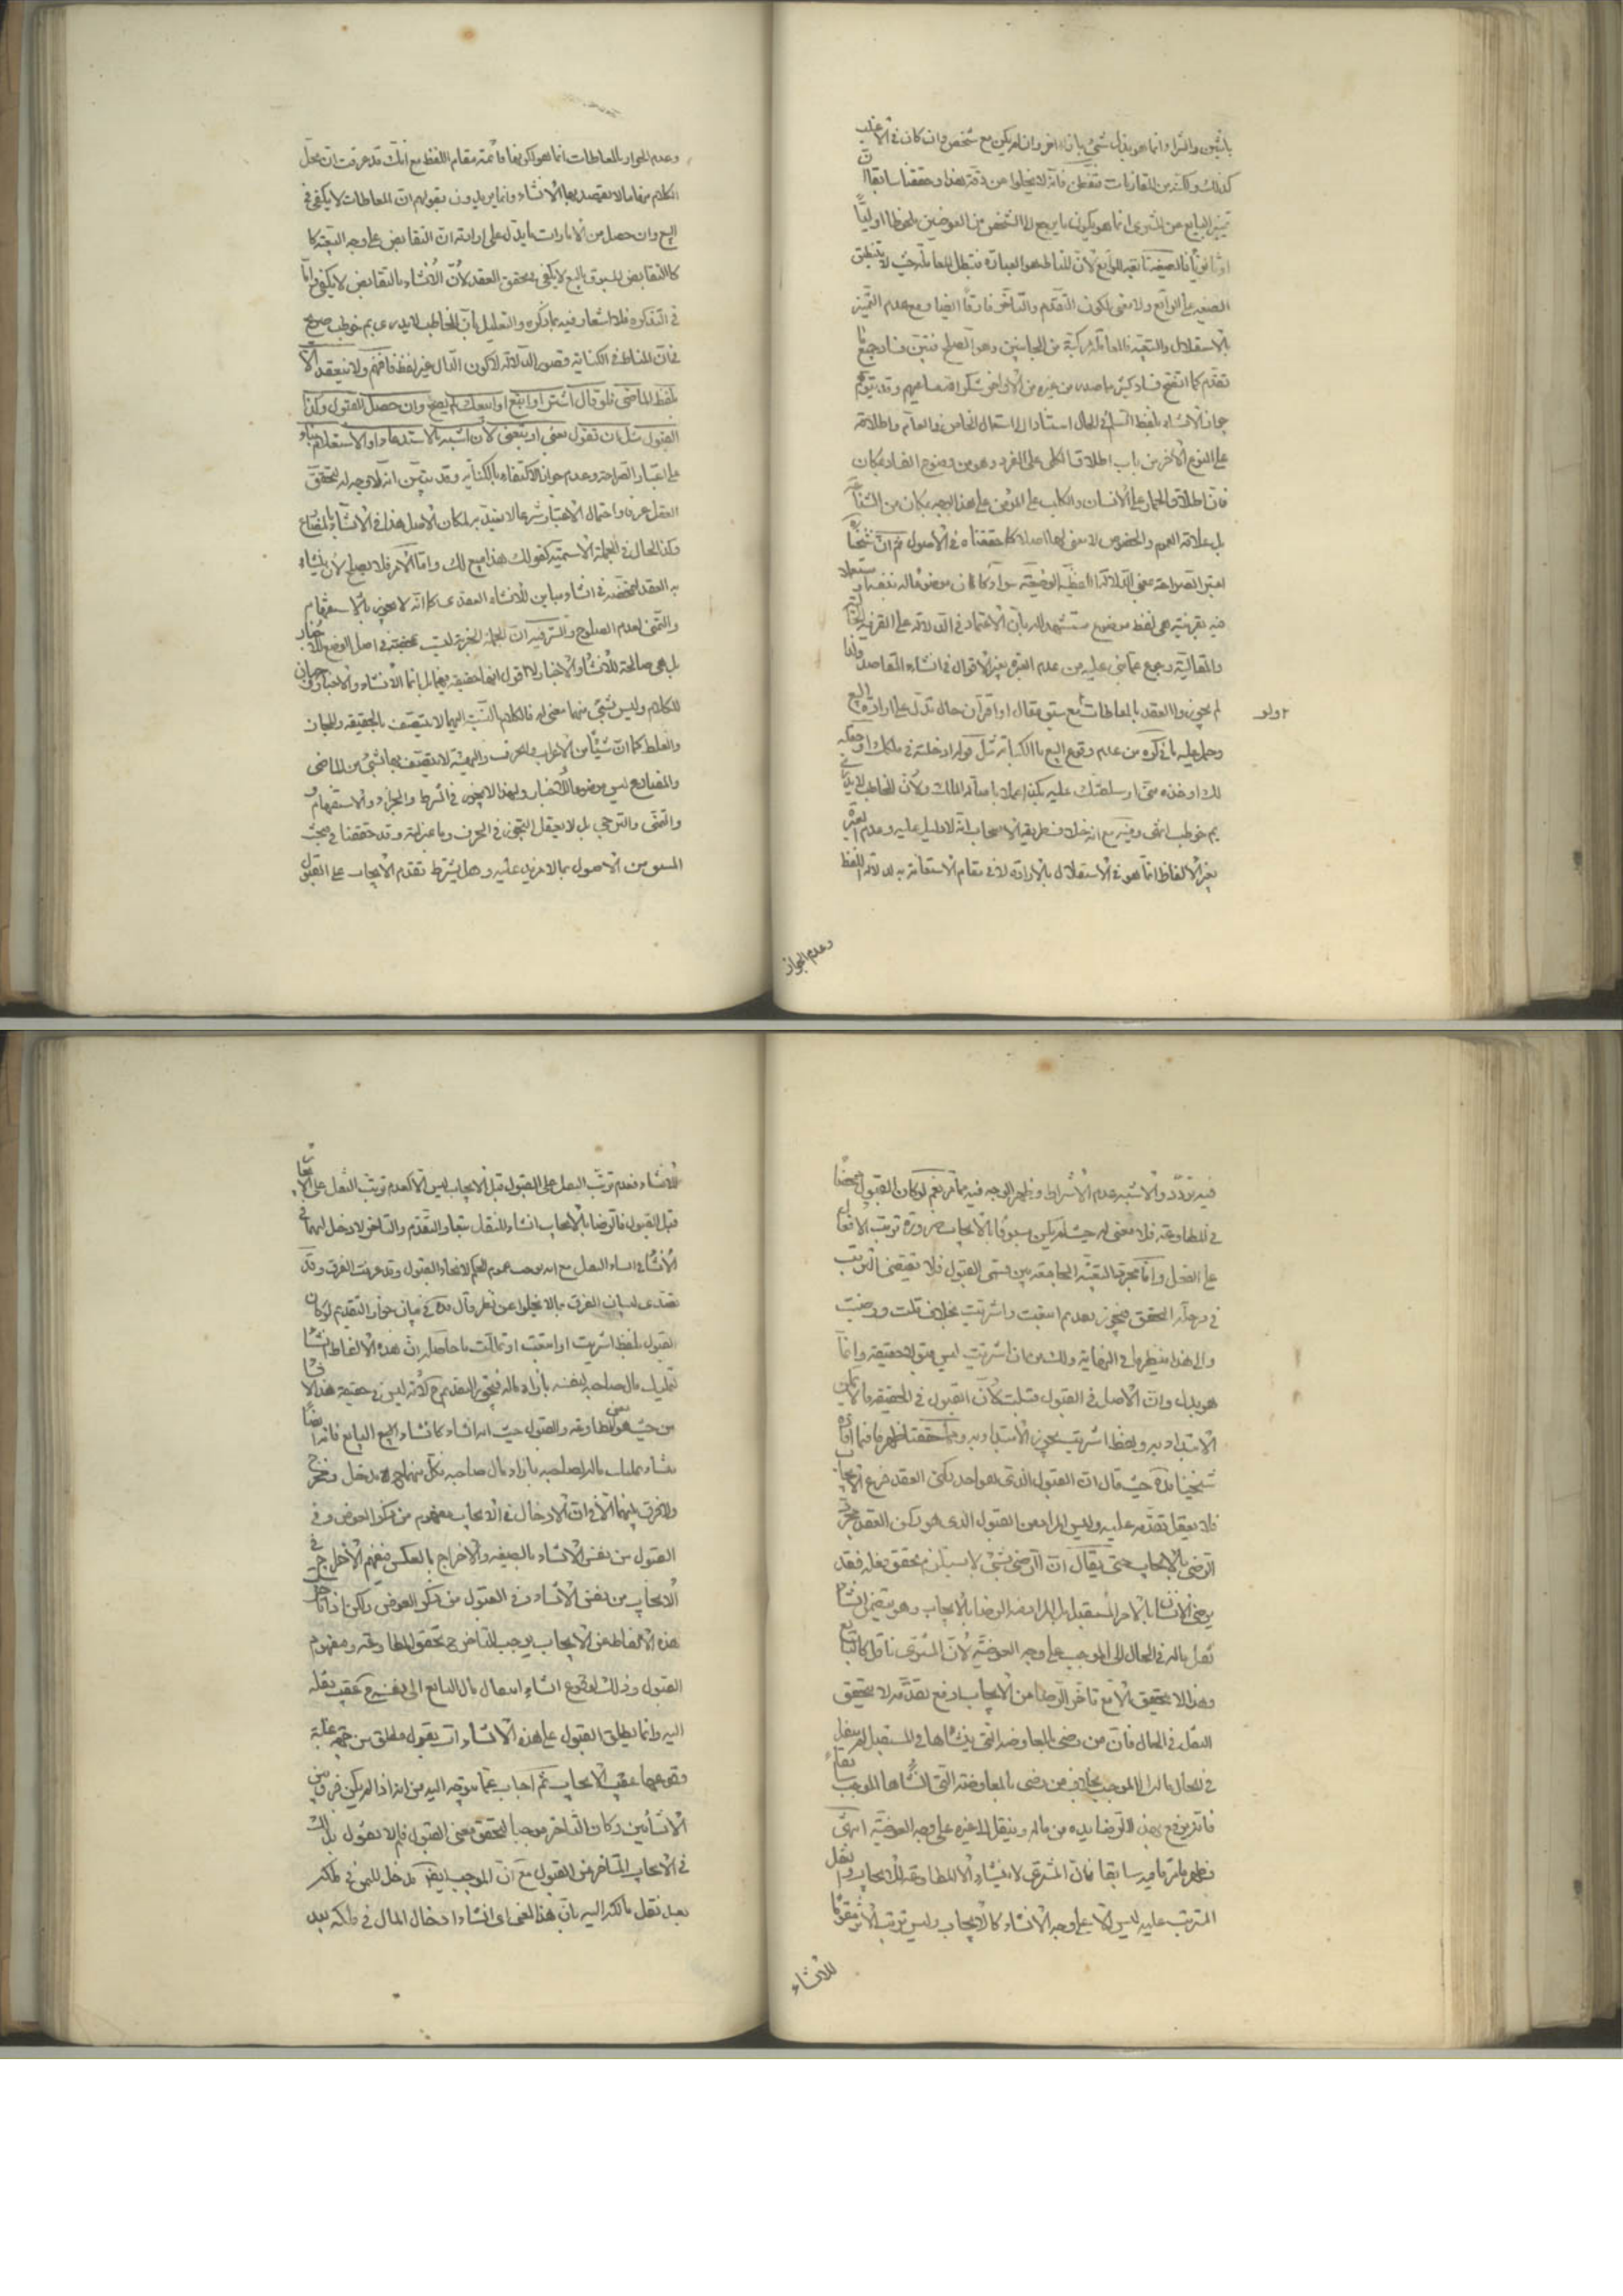 بالثمن والشراء انما هو بذل شئ بازاء اخر وان لم يكن مع شخص وان كان في الاغلب
كذلك ولكنه من المقارنات فتفطن فانه لا يخلوا من دقة وقد حققنا سابقا ان
تميز البايع من المشتري انما هو يكون ما يرجع الى الشخص من العوضين ملحوظا اوليا
او ثانويا فالصيغة تابعة للواقع لان المناط هو العبارة فتبطل المعاملة حيث لا تنطبق
الصيغة على الواقع ولا معنى لكون التقدم والتاخر فارقا ايضا ومع عدم التميز
بالاستقلال والتبعية فالمعاملة مركبة من الجانبين وهو الصلح فتبين فساد جميع ما
تقدم كما اتضح فساد كثير مما صدر من غيره من الاواخر شكر الله مساعيهم وقد يتوهم
جواز الانشاء بلفظ السلم في الحال استنادا الى استعمال الخاص في العام واطلاقه
على النوع الاخر من باب اطلاق الكلي على الفرد وهو من وضوح الفساد بمكان
فان اطلاق الحمار على الانسان والكلب على المؤمن على هذا الوجه بمكان من الشناعة
بل علاقة العموم والخصوص لا معنى لها اصلا كما حققناه في الاصول ثم ان شيخنا
اعتبر الصراحة بمعنى الدلالة اللفظية الوضعية سواء كان موضوعا له بنفسه او مستعملا
فيه بقرينة هي لفظ موضوع مستشهدا له بان الاعتماد في الدلالة على القرينة الحالية
والمقالية رجوع عما بنى عليه من عدم العبرة بغير الاقوال في انشاء المقاصد ولذا
لم يجوزوا العقد بالمعاطاة مع سبق مقال او اقتران حال تدل على ارادة البيع
وحمل عليه ما ذكره من عدم وقوع البيع بالكناية مثل قوله ادخلته في ملكك او جعلته
لك او خذه مني او سلطتك عليه بكذا عملا باصالة الملك ولان المخاطب لا يدري
بم خوطب انتهى وفيه مع انه خلاف طريقة الاصحاب انه لا دليل عليه وعدم العبرة
بغير الالفاظ انما هو في الاستقلال بالارادة لا في مقام الاستعانة به لدلالة اللفظ
وعدم الجواز
وعدم الجواز بالمعاطات انما هو لكونها قائمة مقام اللفظ مع انك قد عرفت ان محل
الكلام منها ما لا يقصد بها الانشاء وانما يريدون بقولهم ان المعاطات لا يكفي في
البيع وان حصل من الامارات ما يدل على ارادته ان التقابض على وجه التبعية كا
كالتقابض المسبوق بالبيع لا يكفي في تحقق العقد لان الانشاء بالتقابض لا يكفي واما
في التذكرة فلا اشعار فيه بما ذكره والتعليل بان المخاطب لا يدري بم خوطب صريح
في ان المناط في الكناية قصور الدلالة لا كون الدال غير لفظ فافهم ولا ينعقد الا
بلفظ الماضي فلو قال اشتر او ابتع او ابيعك لم يصح وان حصل القبول وكذا
القبول مثل ان تقول بعني او تبيعني لان اشبه بالاستدعاء او الاستعلام بناء
على اعتبار الصراحة وعدم جواز الاكتفاء بالكناية وقد تبين انه لا وجه له لتحقق
العقل عرفا واحتمال الاعتبار شرعا لا يفيد لمكان الاصل هذا في الانشاء بالمضارع
وكذا الحال في الجملة الاسمية كقولك هذا مبيع لك واما الامر فلا يصلح لان ينشاء
به العقد لتمحضه في انشاء مباين للانشاء العقدي كما انه لا يجوز بالاستفهام
والتمني لعدم الصلوح والسر فيه ان الجملة الخبرية ليست متمحضة في اصل الوضع للاخبار
بل هي صالحة للانشاء والاخبار ولا اقول انها حقيقة فيهما بل انما الانشاء والاخبار وجهان
للكلام وليس شئ منهما معنى له فالكلام بالنسبة اليهما لا يتصف بالحقيقة والمجاز
والغلط كما ان شيئا من الاعراب والحروف والهيئة لا يتصف بها شئ من الماضي
والمضارع ليس موضوعا للاخبار ولهذا لا يجوز في الشرط والجزاء والاستفهام
والتمني والترجي بل لا يعقل التجوز في الحرف وما بمنزلته وقد حققنا في مبحث
المشتق من الاصول بما لا مزيد عليه وهل يشترط تقدم الايجاب على القبول
فيه تردد والاشبه عدم الاشتراط وظهر الوجه فيه مما مر نعم لو كان القبول محضا
في المطاوعة فلا معنى له حيث لم يكن مسبوقا بالايجاب ضرورة ترتب الانفعال
على الفعل واما مجرد التبعية الجامعة بين قسمي القبول فلا تقتضي الترتب
في مرحلة التحقق فيجوز تقديم ابتعت واشتريت بخلاف قبلت ورضيت
والى هذا ينظر ما في النهاية ولك من ان اشتريت ليس قبولا حقيقة وانما
هو بدل وان الاصل في القبول قبلت لان القبول في الحقيقة ما لا يمكن
الابتداء به وبلفظ اشتريت يجوز الابتداء به ومما حققنا ظهر ما فيما افاده
شيخنا قده حيث قال ان القبول الذي هو احد ركني العقد فرع الايجاب
فلا يعقل تقدمه عليه وليس المراد من القبول الذي هو ركن العقد مجرد
الرضى بالايجاب حتى يقال ان الرضى بشئ لا يستلزم تحقق قبله فقد
يرضى الانسان بالامر المستقبل بل المراد منه الرضا بالايجاب وهو يتضمن انشاء
نقل ماله في الحال الى الموجب على وجه العوضية لان المشتري ناقل كالبايع
وهذا لا يتحقق الا مع تاخر الرضا من الايجاب اذ مع تقدمه لا يتحقق
النقل في الحال فان من رضى بالمعاوضة التي ينشاها في المستقبل لم ينقل
في الحال ماله الى الموجب بخلاف من رضى بالمعاوضة التي انشاها الموجب سابقا
فانه يرفع بهذا الرضا يده من ماله وينقل الى غيره على وجه العوضية انتهى
فظهر ما فيه سابقا فان المشتري لا ينشاء الا المطاوعة للايجاب والنقل
المترتب عليه ليس الا على وجه الانشاء كالايجاب وليس ترتب الاثر مقوما
للانشاء
للانشاء فعدم ترتب النقل على القبول قبل الايجاب ليس الا كعدم ترتب النقل على الايجاب
قبل القبول فالرضا بالايجاب انشاء للنقل تبعا والتقدم والتاخر لا دخل لهما في
الانشاء مع انه يوجب عموم الحكم لانحاء القبول وقد عرفت الفرق وقد
تصدى لبيان الفرق بما لا يخلوا عن نظر قال قده في بيان جواز التقديم لو كان
القبول بلفظ اشتريت او ابتعت او تملكت ما حاصله ان هذه الالفاظ انشاء
لتمليك مال صاحبه لنفسه بازاء ماله فيجوز التقديم ح لانه ليس في حقيقة هذه الا
من حيث هو معنى المطاوعة والقبول حيث انه انشاء كانشاء البيع البايع فانه ايضا
ينشاء تمليك ماله لصاحبه بازاء مال صاحبه فكل منهما يدخل ويخرج
والفرق بينهما الا في ان الادخال في الايجاب مفهوم من ذكر العوض وفي
القبول من نفس الانشاء بالصيغة والاخراج بالعكس فيفهم الاخراج في
الايجاب من نفس الانشاء وفي القبول من ذكر العوض ولكن اذا تاخر
هذه الالفاظ عن الايجاب يوجب التاخر ح تحقق المطاوعة ومفهوم
القبول وذلك لوقوع انشاء انتقال مال البايع الى نفسه ح عقيب نقله
اليه وانما يطلق القبول على هذه الانشاءات بقول مطلق من جهة غلبة
وقوعها عقيب الايجاب ثم اجاب عما يتوجه اليه من انه اذا لم يكن فرق بين
الانشائين وكان التاخر موجبا لتحقق معنى القبول فلم لا يقول بذلك
في الايجاب المتاخر من القبول مع ان الموجب ايضا يدخل الثمن في ملكه
بعد نقل مالكه اليه بان هذا المعنى اي انشاء ادخال المال في ملكه بعد